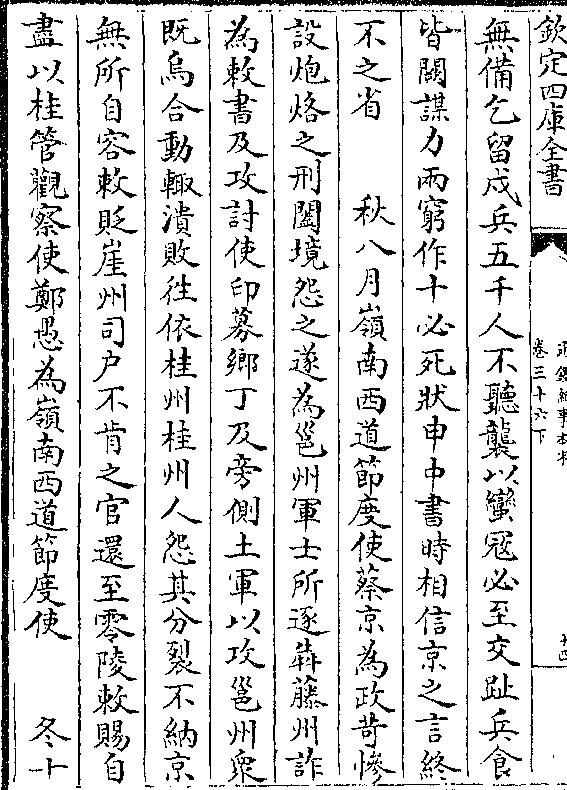 欽定四庫全書
通鑑紀事本末
卷三十六下
無備乞留戍兵五千人不聽襲以蠻冦必至交趾兵食
皆闕謀力兩窮作十必死狀申中書時相信京之言終
不之省　秋八月嶺南西道節度使蔡京為政苛慘
設炮烙之刑闔境怨之遂為邕州軍士所逐奔藤州詐
為敕書及攻討使印募鄉丁及旁側土軍以攻邕州衆
既烏合動輒潰敗往依桂州桂州人怨其分裂不納京
無所自容敕貶崖州司户不肯之官還至零陵敕賜自
盡以桂管觀察使鄭愚為嶺南西道節度使　冬十